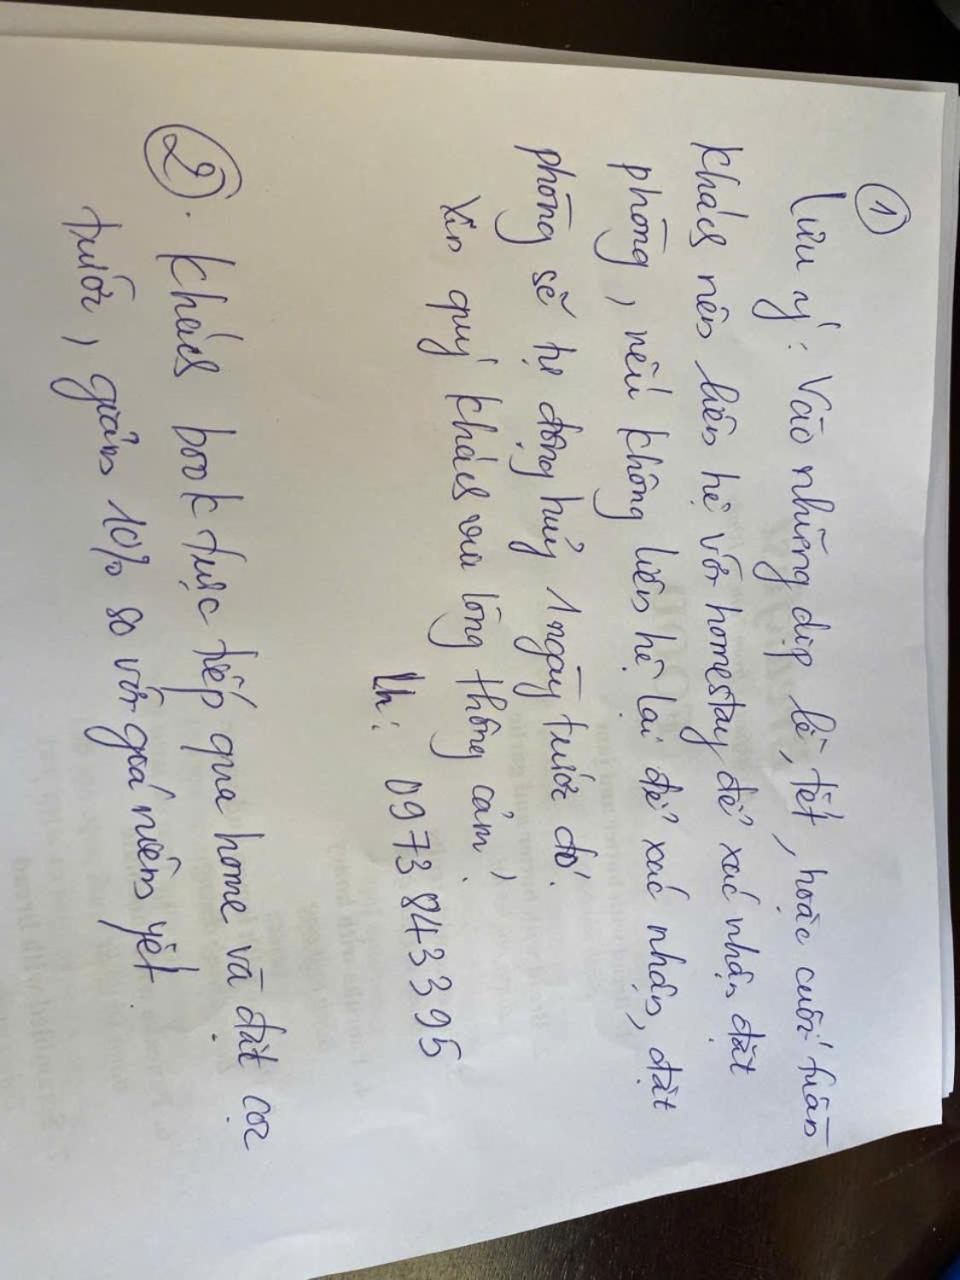 ①
Lưu ý: Vào những dịp lễ, tết, hoặc cuối tuần
khách nên liên hệ với homestay để xác nhận đặt
phòng, nếu không liên hệ lại để xác nhận, đặt
phòng sẽ tự động huỷ 1 ngày trước đó.
Xin quý khách vui lòng thông cảm,
Lh: 0973 843395
②. Khách book trực tiếp qua home và đặt cọc
trước, giảm 10% so với giá niêm yết.